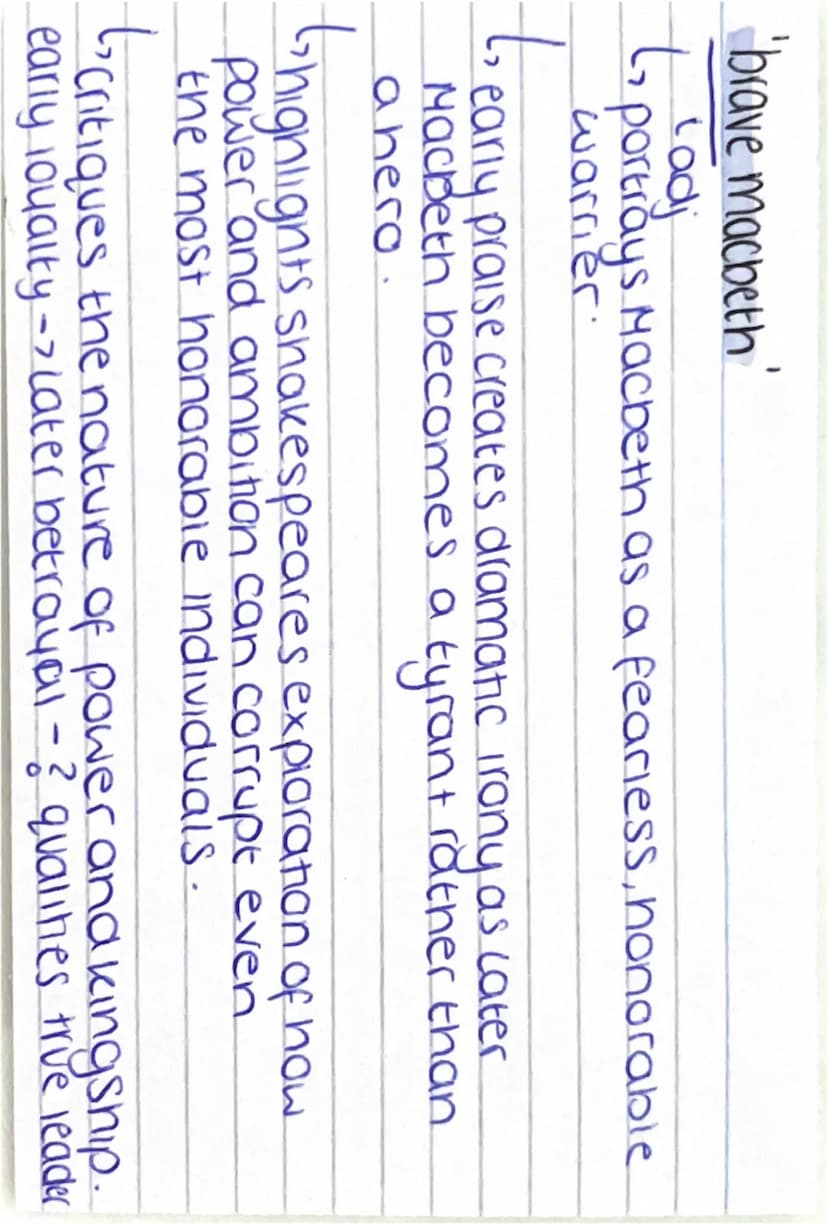 'brave macbeth'
↳ adj
↳ portrays Macbeth as a fearless, honorable
warrier.
↳ early praise creates dramatic irony as later
Macbeth becomes a tyrant rather than
a hero.
↳ highlights shakespeares exploration of how
power and ambition can corrupt even
the most honorable individuals.
↳ critiques the nature of power and kingship.
early loyalty -> later betrayal - ? qualities true leader